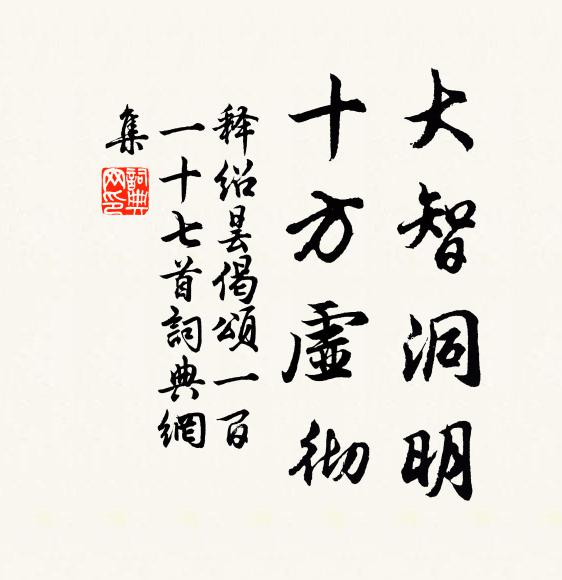 大智洞明
十方虛彻
释绍昙偈頌一百
一十七首詞典網
集
詞典
网印